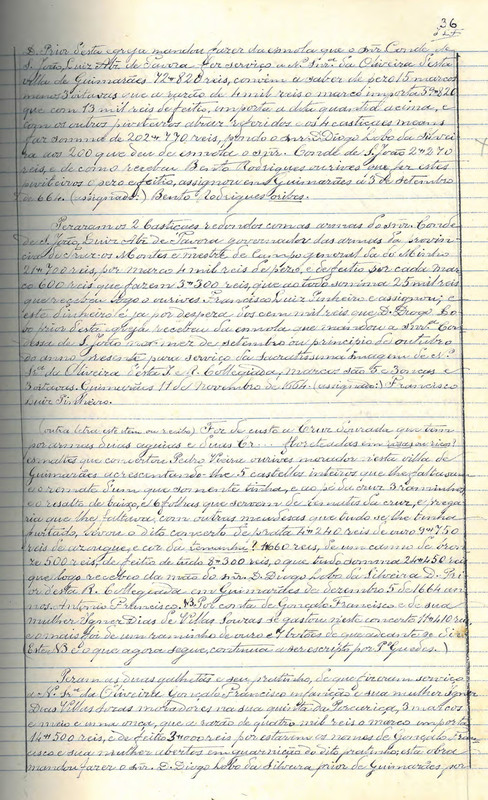 36
D. Prior desta egreja mandou fazer da esmola que o snr. Conde de
S. João, Luiz Alz. de Tavora fez serviço a N.ª Snr.ª da Oliveira desta
villa de Guimarães 72$820 reis, convem a saber de pezo 15 marcos
menos 3 oitavas que a razão de 4 mil reis o marco importa 59$820
que com 13 mil reis de feitio, importa a dita quantia acima, e
com os outros picheturios atraz referidos e os 4 castiçaes
faz somma de 202$270 reis, pondo o snr. D. Diogo Lobo da Silvei-
ra aos 200 que deu de esmola o snr. Conde de S. João 2$270
reis, e de como recebeu Bento Rodrigues ourives que fez estes
o pezo e feitio, assignou em Guimarães a 5 de setembro
de 664. (assignado:) Bento Rodrigues ourives.
Pezaram os 2 castiçaes redondos com as armas do snr. Conde
de S. João, Luiz Alz. de Tavora governador das armas da provin-
cia de Traz os Montes e mestre de campo general da do Minho
21$700 reis, por marco 4 mil reis de pezo, e de feitio por cada mar-
co 600 reis que fazem 3$300 reis, que ao todo somma 25 mil reis
que recebeu logo o ourives Francisco Luiz Pinheiro e assignou; e
este dinheiro é ja por despeza dos cem mil reis que D. Diogo Lo-
bo prior desta egreja recebeu da esmola que mandou a snr.ª Con-
dessa de S. João no mez de setembro ou principio de outubro
do anno presente para serviço da Sacratissima Imagem de N.ª
Sr.ª da Oliveira desta I. e R. Collegiada, marcos são 5 e 3 onças e
3 oitavas. Guimarães 11 de novembro de 1664. (assignado:) Francisco
Luiz Pinheiro.
(outra letra este item ou recibo). Fez de custo a Cruz dourada que tem
por armas duas aguias e duas Cr... floreteadas em
esmaltes que concertou Pedro Vieira ourives morador nesta villa de
Guimarães acrescentando-lhe 5 castellos inteiros que lhe faltavam
e o remate d'um que somente tinha, e ao pé da cruz 3 raminhos
e o resalto de baixo, e 6 folhas que servem de remates da cruz, e prega-
ria que lhe faltava, com outras meudesas que tudo se lhe tinha
furtado, levou o dito concerto de prata 4$240 reis de ouro 9$750
reis de azougue, e cor da 1$660 reis, de um canudo de bron-
ze 500 reis, de feitio de tudo 8$300 reis, o que tudo somma 24$450 reis
que logo recebeu da mão do snr. D. Diogo Lobo da Silveira D. Pri-
or desta R. Collegiada, em Guimarães de dezembro 5 de 1664 an-
nos. Antonio Francisco. NB. Por conta de Gonçalo Francisco e de sua
mulher Ignez Dias de Villas Louras se gastou neste concerto 11$410 reis
e o mais foi de um raminho de ouro e 7 botões de que adiante se dirá
(Este NB e o que agora segue, continua a ser escripto por P.º Guedes.)
Pezam as duas galhetas e seu pratinho, de que fizeram serviço
a N.ª Sr.ª da Oliveira Gonçalo Francisco infanção e sua mulher Ignez
Dias Villas Louras moradores na sua quinta de 3 marcos
e meio e uma onça, que a razão de quatro mil reis o marco importa
14$500 reis, e de feitio 3$000 reis por estarem os nomes de Gonçalo Fran-
cisco e sua mulher abertos em guarnição do dito pratinho; esta obra
mandou fazer o snr. D. Diogo Lobo da Silveira prior de Guimarães, por